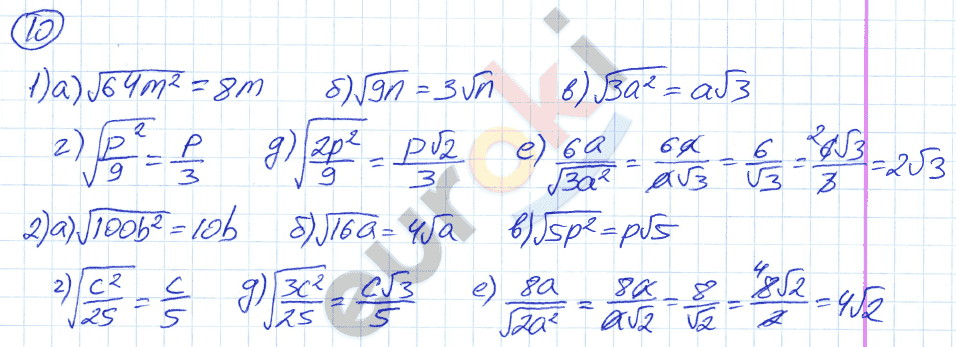 10
1) а) √64m² = 8m б) √9n = 3√n в) √3a² = a√3
г) √p²/9 = p/3 д) √2p²/9 = p√2/3 е) 6a/√3a² = 6a/a√3 = 6/√3 = ²6√3/3 = 2√3
2) а) √100b² = 10b б) √16a = 4√a в) √5p² = p√5
г) √c²/25 = c/5 д) √3c²/25 = c√3/5 е) 8a/√2a² = 8a/a√2 = 8/√2 = ⁴8√2/2 = 4√2
euroki